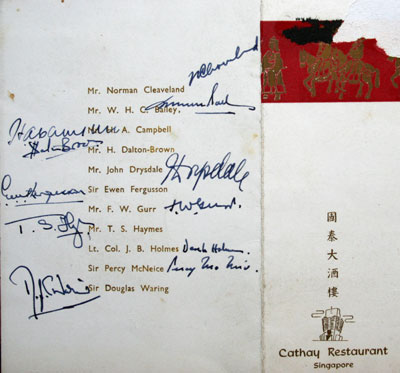 Mr. Norman Cleaveland
Mr. W. H. C. Bailey,
A. Campbell
Mr. H. Dalton-Brown
Mr. John Drysdale
Drysdale
Sir Ewen Fergusson
Mr. F. W. Gurr
F.W. Gurr.
Mr. T. S. Haymes
T. S.
Lt. Col. J. B. Holmes
Derek Holmes
Sir Percy McNeice
Percy
Sir Douglas Waring
國泰大酒樓
Cathay Restaurant
Singapore